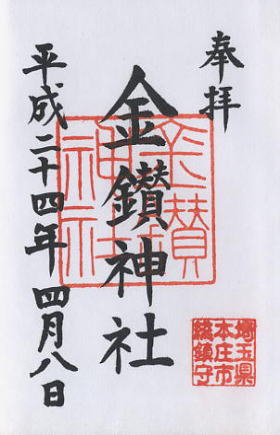 奉拝
金鑚神社
平成二十四年四月八日
金鑚神社
埼玉県
本庄市
総鎮守